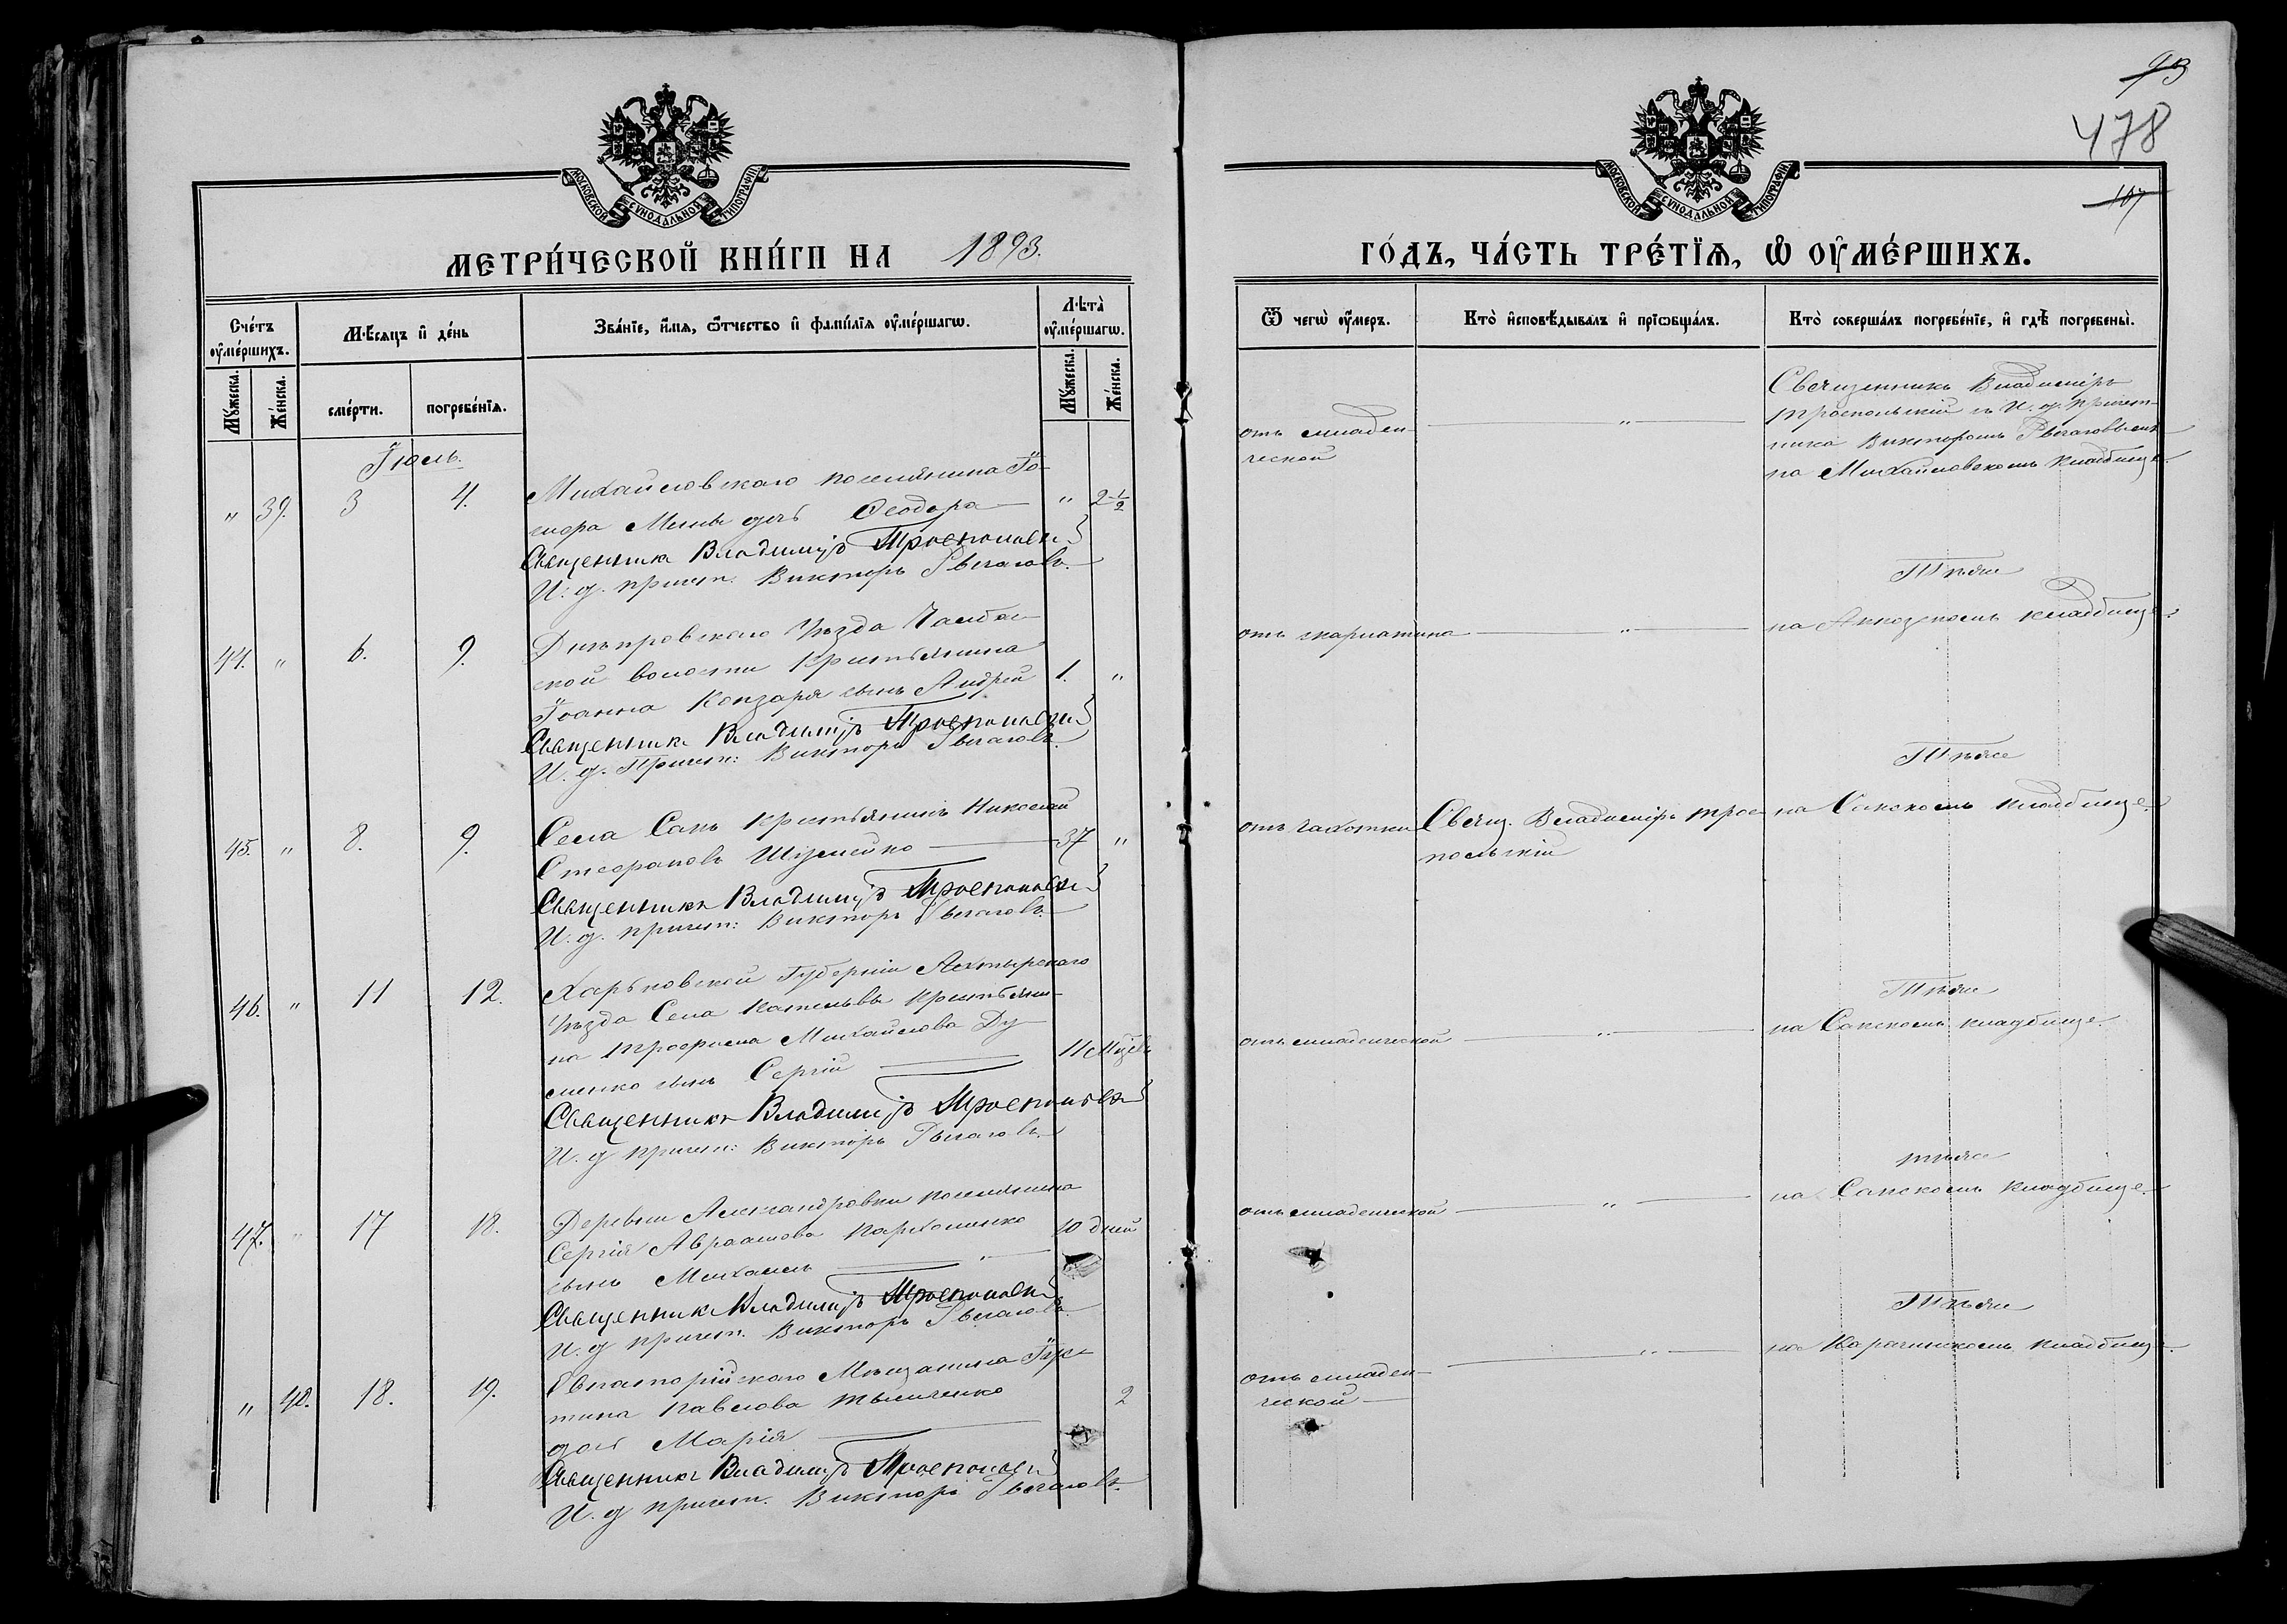 93
478
107
МОСКОВСКОЙ СѴНОДАЛЬНОЙ ТИПОГРАФІИ
МОСКОВСКОЙ СѴНОДАЛЬНОЙ ТИПОГРАФІИ
МЕТРИ́ЧЕСКОЙ КНИ́ГИ НА 1893.
ГО́ДЪ, ЧА́СТЬ ТРЕ́ТІѦ, Ѡ ОУМЕ́РШИХЪ.
Сче́тъ оуме́ршихъ.
Мꙋ́жеска.
Же́нска.
Мѣ́сѧцъ и де́нь
сме́рти.
погребе́нїѧ.
Зва́нїе, и́мѧ, ѻ́тчество и фами́лїѧ оуме́ршагѡ.
Лѣта̀ оуме́ршагѡ.
Мꙋ́жеска.
Же́нска.
Ѿ чегѡ̀ оу́меръ.
Кто̀ и҆сповѣ́дывалъ и҆ прїѡбща́лъ.
Кто̀ соверша́лъ погребе́нїе, и҆ гдѣ̀ погребены̀.
Іюль.
" 39. 3 4.
Михайловскаго поселянина
дочь Ѳеодора " 2 1/2
Священникъ Владиміръ Троепольскій
И. д. причет. Викторъ
отъ младен-
ческой
"
Священникъ Владиміръ
Троепольскій съ И. д. причет-
ника Викторомъ
на Михайловскомъ кладбище
44. " 6. 9.
Днѣпровскаго Уѣзда
ской волости крестьянина
Іоанна сынъ Андрей 1. "
Священникъ Владиміръ Троепольскій
И. д. Причет: Викторъ
отъ скарлатина "
Тѣже
на кладбище
45. " 8. 9.
Села Сакъ крестьянинъ Николай
Стефановъ 37 "
Священникъ Владиміръ Троепольскій
И. д. причет: Викторъ
отъ чахотки
Свящ. Владиміръ Трое-
польскій
Тѣже
на Сакскомъ кладбище
46. " 11 12.
Харьковской Губерніи Ахтырскаго
Уѣзда Села Котельвы крестьяни-
на Трофима Михайлова Ду-
сынъ Сергій 11 Мцѣвъ
Священникъ Владиміръ Троепольскій
И. д причет: Викторъ
отъ младенческой "
Тѣже
на Сакскомъ кладбище.
47. " 17 18.
Деревни Александровки поселянина
Сергія Авраамова Пархоменко
сынъ Михаилъ 10 дней
Священникъ Владиміръ Троепольскій
И. д причет. Викторъ
отъ младенческой "
тѣже
на Сакскомъ кладбище
" 40. 18. 19.
Евпаторійскаго Мѣщанина Іус-
тина Павлова
дочь Марія 2
Священникъ Владиміръ Троепольскій
И. д причет. Викторъ
отъ младен-
ческой
"
Тѣже
на кладбище